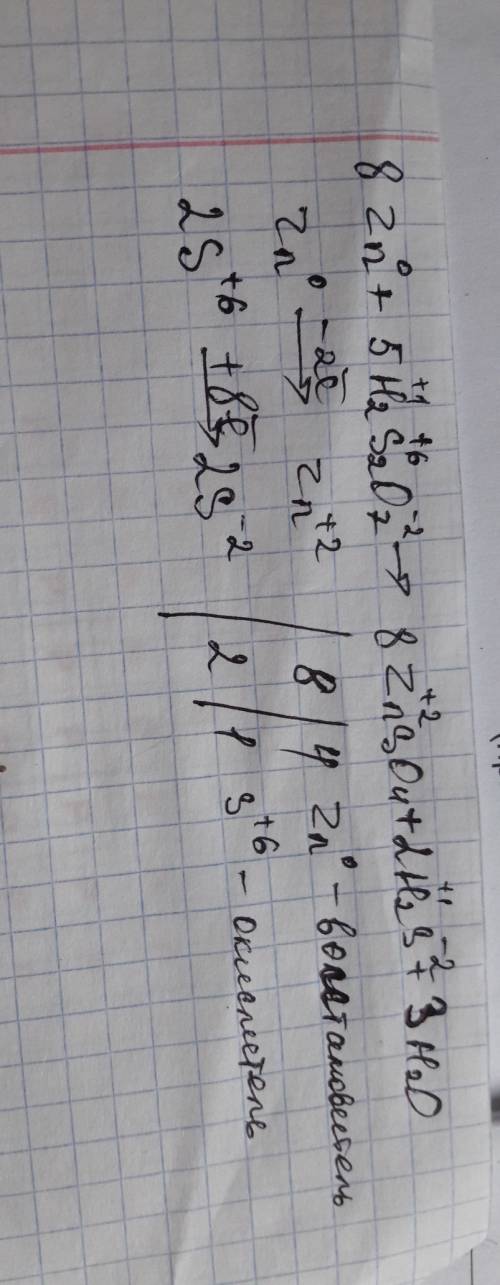 8 Zn⁰ + 5 H₂⁺¹S₂⁺⁶O₇⁻² → 8 Zn⁺²SO₄ + 2H₂⁺¹S⁻² + 3 H₂O
Zn⁰ -2ē → Zn⁺² | 8 | 4 Zn⁰ - восстановитель
2S⁺⁶ +8ē → 2S⁻² | 2 | 1 S⁺⁶ - окислитель